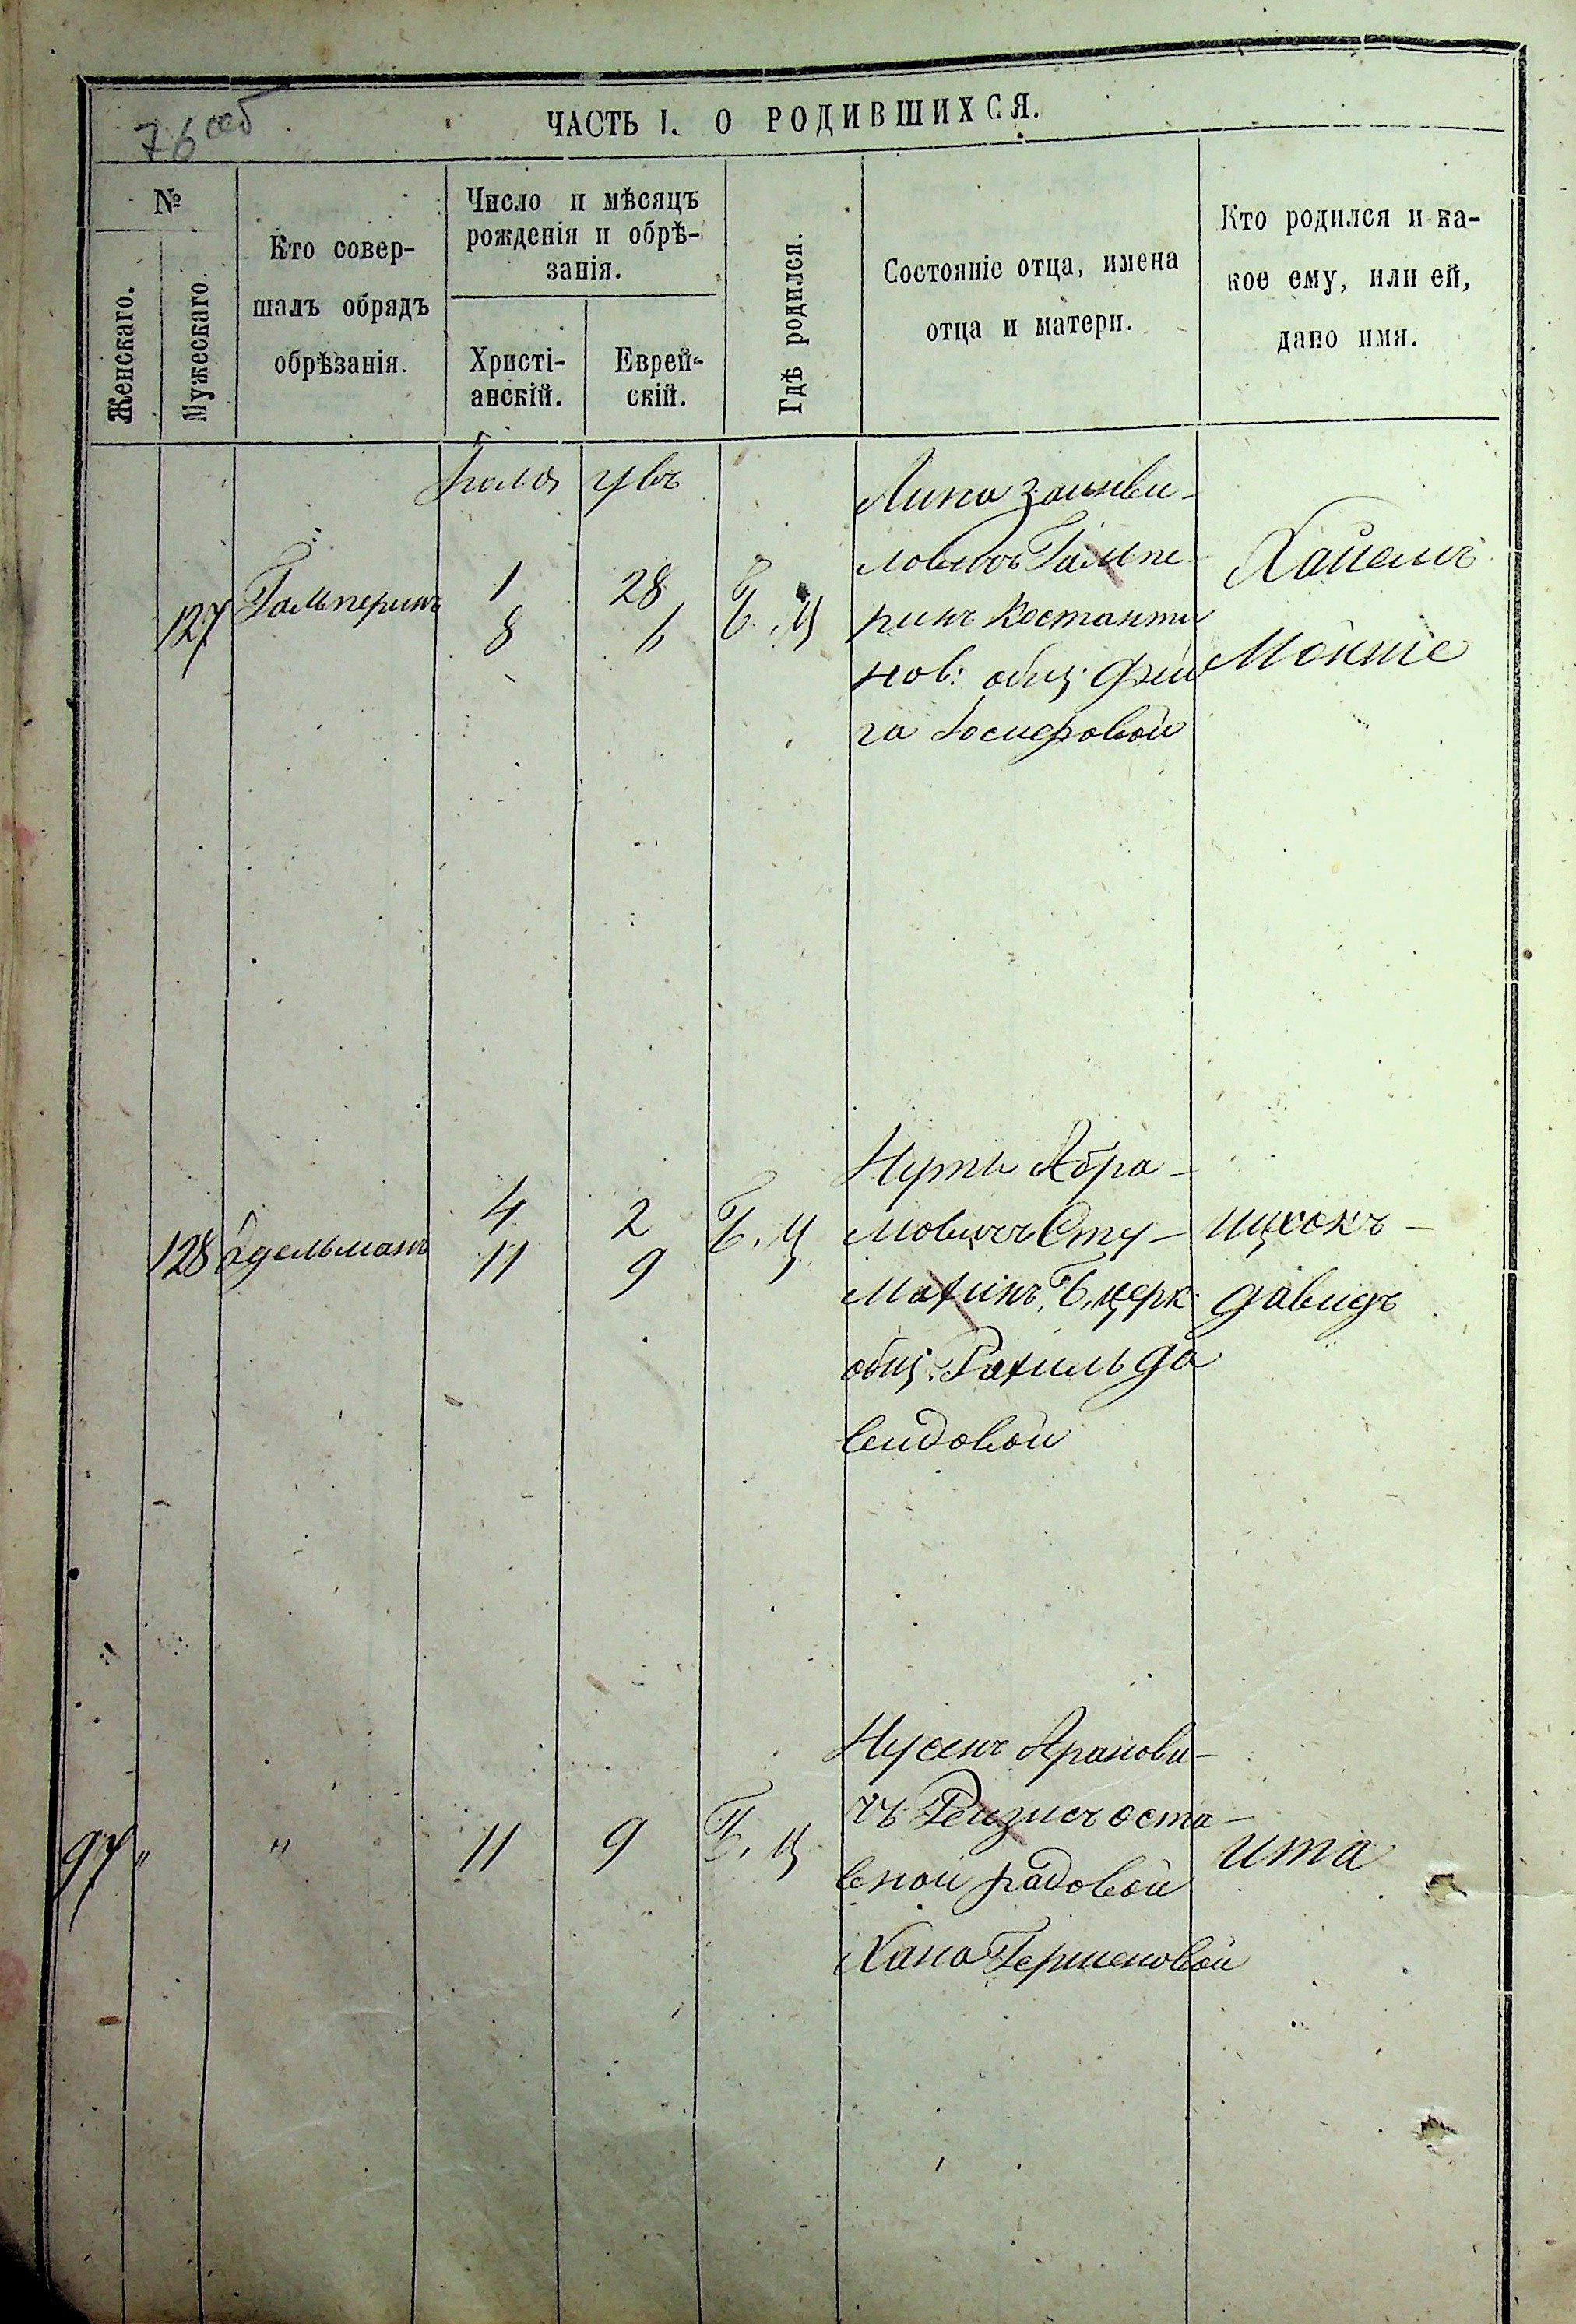 76 об
ЧАСТЬ I. О РОДИВШИХСЯ.
№
Женскаго.
Мужескаго.
Кто совер-
шалъ обрядъ
обрѣзанія.
Число и мѣсяцъ
рожденія и обрѣ-
занія.
Христі-
анскій.
Еврей-
скій.
Гдѣ родился.
Состояніе отца, имена
отца и матери.
Кто родился и ка-
кое ему, или ей,
дано имя.
127
Гальперинъ
1
8
28
6
Б. Ц
ловичъ Гальпе-
ринъ Костанти
нов: общ: Фей
га Іосифовой
Мокше
128
Едельманъ
4
11
2
9
Б. Ц
Нута Абра-
мовичъ Сту-
махинъ Б. церк.
общ. Рахиль Да
видовой
ицхокъ-
давидъ
97 "
"
11
9
Б. Ц
Нусенъ Аранови-
чъ Рейзисъ оста-
вной радовой
Хана Гершеновой
ита